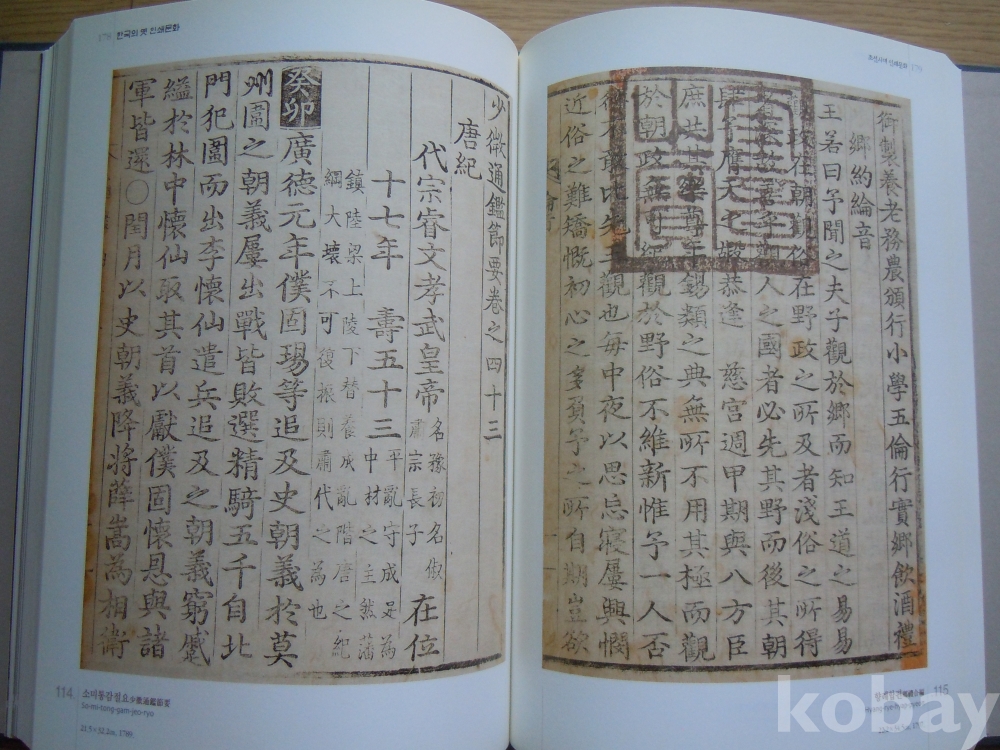 178 한국의 옛 인쇄문화
少微通鑑節要卷之四十三
唐紀
代宗睿文孝武皇帝 名豫初名俶肅宗長子 在位
十七年 壽五十三 平亂守成足為中材之主然藩
鎮陸梁上陵下替養成亂階唐之紀
綱大壞不可復振則肅代之為也
癸卯 廣德元年僕固瑒等追及史朝義於莫
州圍之朝義屢出戰皆敗選精騎五千自北
門犯圍而出李懷仙遣兵追及之朝義窮蹙
縊於林中懷仙取其首以獻僕固懷恩與諸
軍皆還○閏月以史朝義降將薛嵩為相衛
114 소미통감절요少微通鑑節要
So-mi-tong-gam-jeo-ryo
御製養老務農頒行小學五倫行實鄉飲酒禮
鄉約綸音
王若曰予聞之夫子觀於鄉而知王道之易易
政在朝 俗在野政之所及者淺俗之所得
人之國者必先其野而後其朝
膺天之 恭逢 慈宮週甲期與八方臣
庶共其 錫類之典無所不用其極而觀
於朝政無 觀於野俗不維新惟予一人否
敢比先 觀也每中夜以思忘寢屢興憫
近俗之難矯慨初心之多負予之所自期豈欲
115
kobay